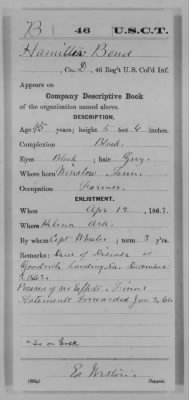 B 46 U.S.C.T.
Hamilton Bond
, Co. D, 46 Reg't U. S. Col'd Inf.
Appears on
Company Descriptive Book
of the organization named above.
DESCRIPTION.
Age 45 years; height 5 feet 6 inches.
Complexion Black
Eyes Black; hair Grey
Where born Winston Tenn.
Occupation Farmer
ENLISTMENT.
When Apr 12, 1863.
Where Helena Ark.
By whom Capt Wheeler; term 3 y'rs.
Remarks: Died of Disease at
Goodrich Landing La. December
1863.
of an Effects - Final
Statement Forwarded Jan 3, 64
Copyist.